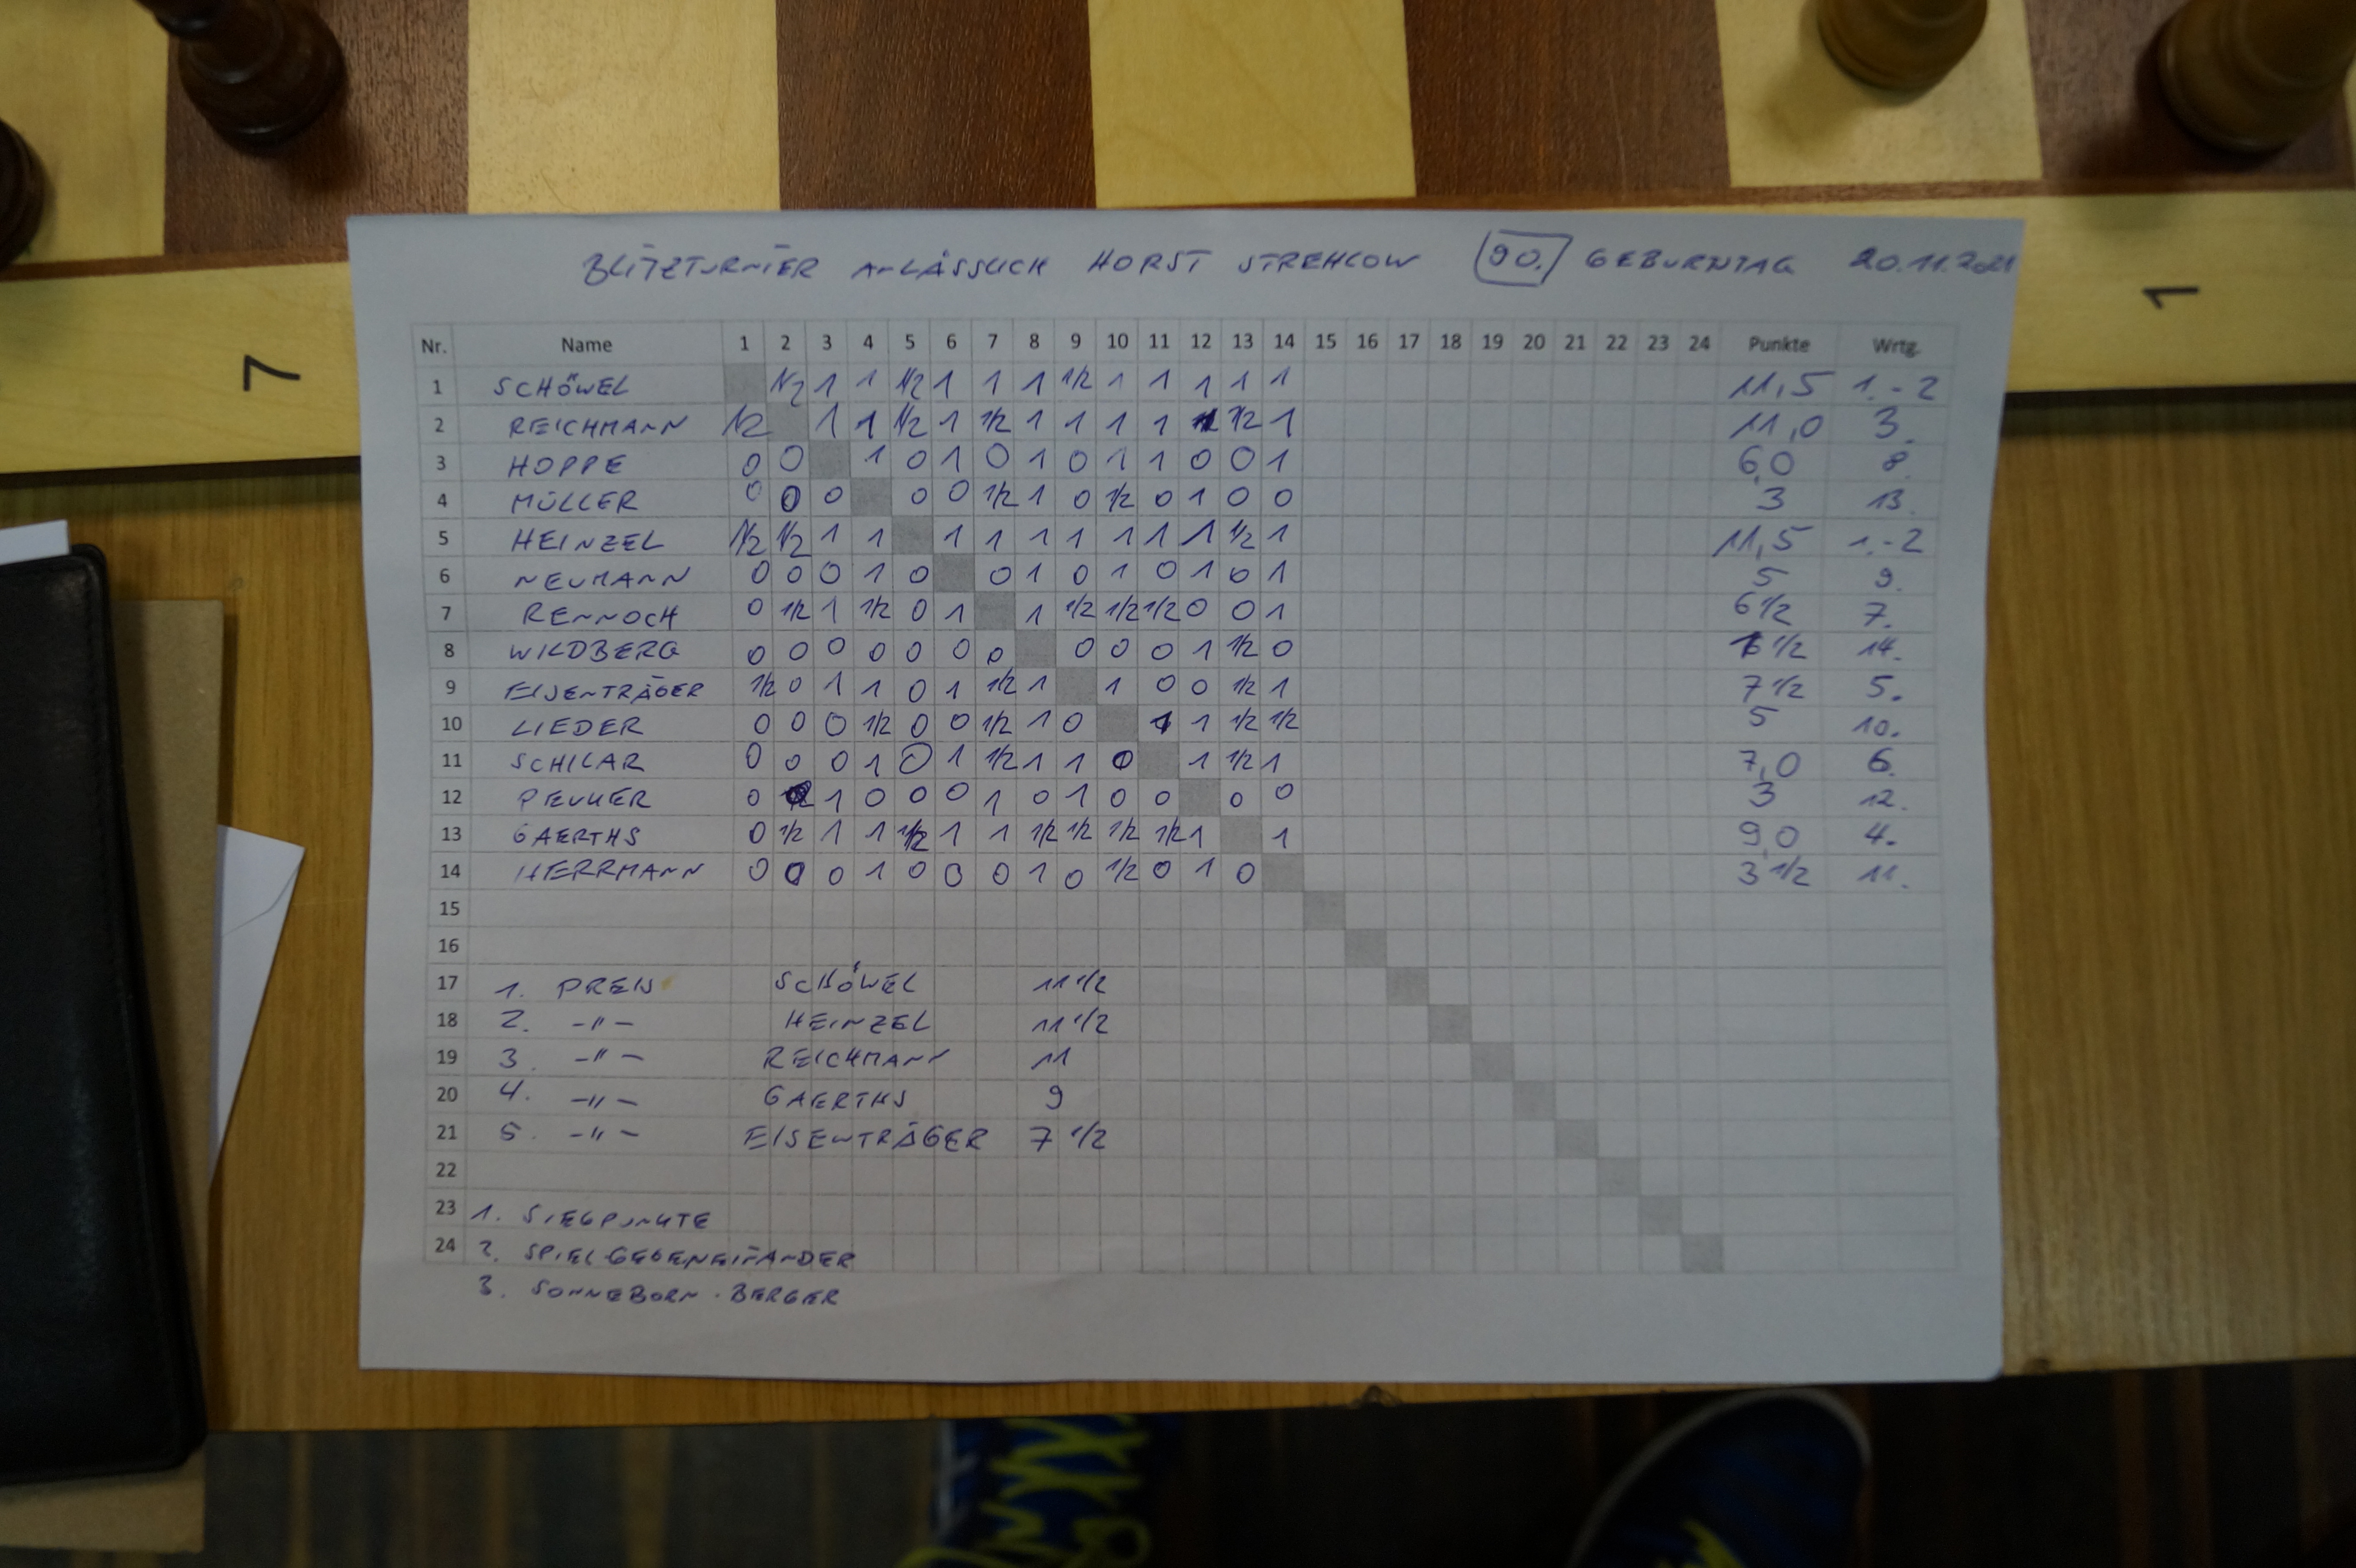 7
1
BLITZTURNIER ANLÄSSLICH HORST STREHLOW 90. GEBURNTAG 20.11.2021
Nr. Name 1 2 3 4 5 6 7 8 9 10 11 12 13 14 15 16 17 18 19 20 21 22 23 24 Punkte Wrtg.
1 SCHÖWEL 1/2 1 1 1/2 1 1 1 1/2 1 1 1 1 1 11,5 1.-2
2 REICHMANN 1/2 1 1 1/2 1 1/2 1 1 1 1 1 1/2 1 11,0 3.
3 HOPPE 0 0 1 0 1 0 1 0 1 1 0 0 1 6,0 8.
4 MÜLLER 0 0 0 0 0 1/2 1 0 1/2 0 1 0 0 3 13.
5 HEINZEL 1/2 1/2 1 1 1 1 1 1 1 1 1 1/2 1 11,5 1.-2
6 NEUMANN 0 0 0 1 0 0 1 0 1 0 1 0 1 5 9.
7 RENNOCH 0 1/2 1 1/2 0 1 1 1/2 1/2 1/2 0 0 1 6 1/2 7.
8 WILDBERG 0 0 0 0 0 0 0 0 0 0 1 1/2 0 1/2 14.
9 EISENTRÄGER 1/2 0 1 1 0 1 1/2 1 1 0 0 1/2 1 7 1/2 5.
10 LIEDER 0 0 0 1/2 0 0 1/2 1 0 1 1 1/2 1/2 5 10.
11 SCHILAR 0 0 0 1 0 1 1/2 1 1 0 1 1/2 1 7,0 6.
12 PEUKER 0 1 0 0 0 1 0 1 0 0 0 0 3 12.
13 GAERTHS 0 1/2 1 1 1/2 1 1 1/2 1/2 1/2 1/2 1 1 9,0 4.
14 HERRMANN 0 0 0 1 0 0 0 1 0 1/2 0 1 0 3 1/2 11.
15
16
17 1. PREIS SCHÖWEL 11 1/2
18 2. -"- HEINZEL 11 1/2
19 3. -"- REICHMANN 11
20 4. -"- GAERTHS 9
21 5. -"- EISENTRÄGER 7 1/2
22
23 1. SIEGPUNKTE
24 2. SPIEL GEGENEINANDER
3. SONNEBORN-BERGER